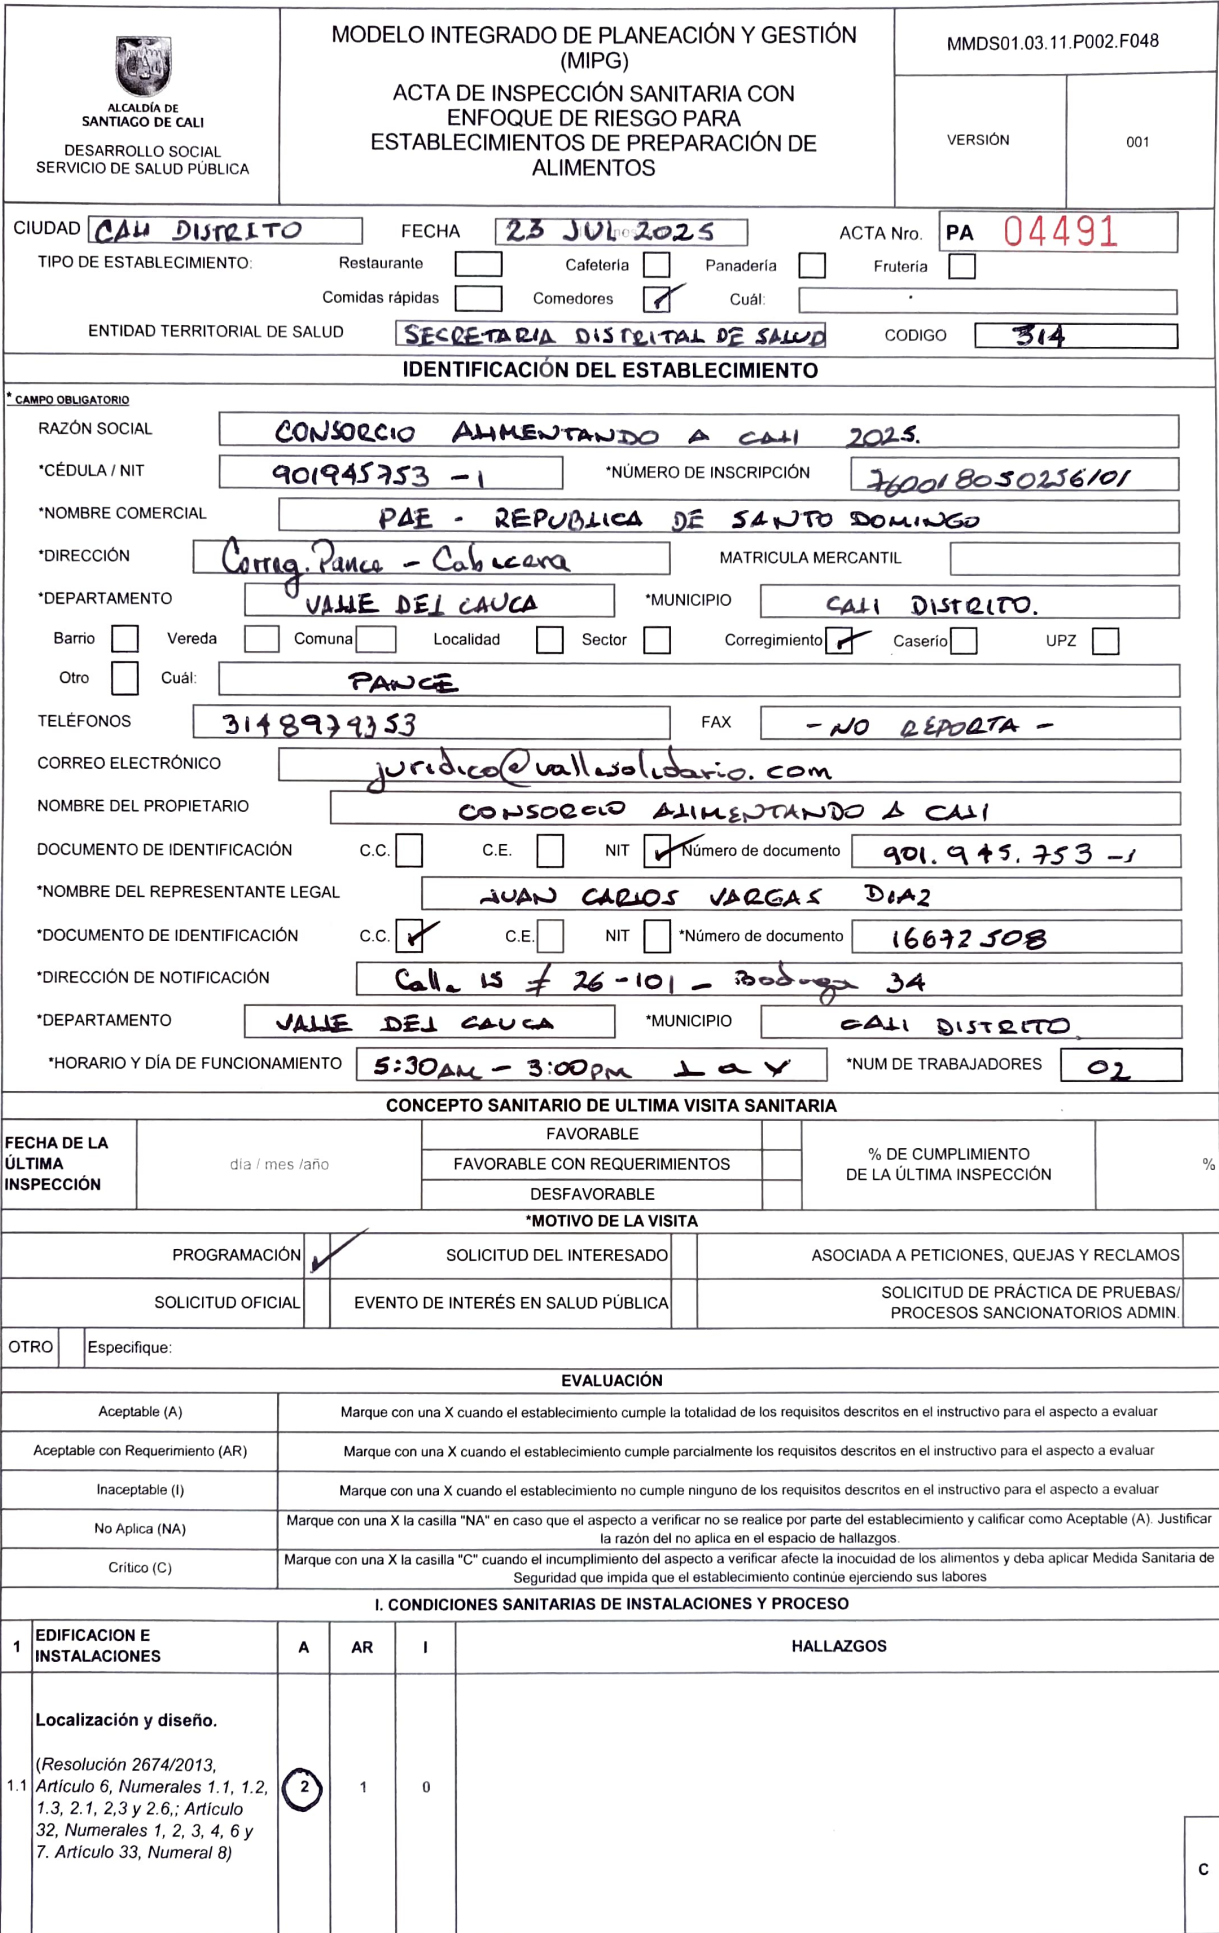 MODELO INTEGRADO DE PLANEACIÓN Y GESTIÓN
(MIPG)
ACTA DE INSPECCIÓN SANITARIA CON
ENFOQUE DE RIESGO PARA
ESTABLECIMIENTOS DE PREPARACIÓN DE
ALIMENTOS
MMDS01.03.11.P002.F048
VERSIÓN 001
ALCALDÍA DE
SANTIAGO DE CALI
DESARROLLO SOCIAL
SERVICIO DE SALUD PÚBLICA
CIUDAD CALI DISTRITO FECHA 23 JUL 2025 ACTA Nro. PA 04491
TIPO DE ESTABLECIMIENTO: Restaurante Cafetería Panadería Frutería
Comidas rápidas Comedores ✓ Cuál:
ENTIDAD TERRITORIAL DE SALUD SECRETARIA DISTRITAL DE SALUD CODIGO 314
IDENTIFICACIÓN DEL ESTABLECIMIENTO
* CAMPO OBLIGATORIO
RAZÓN SOCIAL CONSORCIO ALIMENTANDO A CALI 2025.
*CÉDULA / NIT 901945753-1 *NÚMERO DE INSCRIPCIÓN 760018050256101
*NOMBRE COMERCIAL PAE - REPUBLICA DE SANTO DOMINGO
*DIRECCIÓN Correg. Pance - Cabecera MATRICULA MERCANTIL
*DEPARTAMENTO VALLE DEL CAUCA *MUNICIPIO CALI DISTRITO.
Barrio Vereda Comuna Localidad Sector Corregimiento ✓ Caserío UPZ
Otro Cuál: PANCE
TELÉFONOS 3148979353 FAX - NO REPORTA -
CORREO ELECTRÓNICO juridico@vallesolidario.com
NOMBRE DEL PROPIETARIO CONSORCIO ALIMENTANDO A CALI
DOCUMENTO DE IDENTIFICACIÓN C.C. C.E. NIT ✓ Número de documento 901.945.753-1
*NOMBRE DEL REPRESENTANTE LEGAL JUAN CARLOS VARGAS DIAZ
*DOCUMENTO DE IDENTIFICACIÓN C.C. ✓ C.E. NIT *Número de documento 16672508
*DIRECCIÓN DE NOTIFICACIÓN Calle 15 # 26-101 - Bodega 34
*DEPARTAMENTO VALLE DEL CAUCA *MUNICIPIO CALI DISTRITO
*HORARIO Y DÍA DE FUNCIONAMIENTO 5:30AM - 3:00PM L a V *NUM DE TRABAJADORES 02
CONCEPTO SANITARIO DE ULTIMA VISITA SANITARIA
FECHA DE LA
ÚLTIMA
INSPECCIÓN
día / mes /año
FAVORABLE
FAVORABLE CON REQUERIMIENTOS
DESFAVORABLE
% DE CUMPLIMIENTO
DE LA ÚLTIMA INSPECCIÓN
%
*MOTIVO DE LA VISITA
PROGRAMACIÓN ✓ SOLICITUD DEL INTERESADO ASOCIADA A PETICIONES, QUEJAS Y RECLAMOS
SOLICITUD OFICIAL EVENTO DE INTERÉS EN SALUD PÚBLICA SOLICITUD DE PRÁCTICA DE PRUEBAS/
PROCESOS SANCIONATORIOS ADMIN.
OTRO Especifique:
EVALUACIÓN
Aceptable (A) Marque con una X cuando el establecimiento cumple la totalidad de los requisitos descritos en el instructivo para el aspecto a evaluar
Aceptable con Requerimiento (AR) Marque con una X cuando el establecimiento cumple parcialmente los requisitos descritos en el instructivo para el aspecto a evaluar
Inaceptable (I) Marque con una X cuando el establecimiento no cumple ninguno de los requisitos descritos en el instructivo para el aspecto a evaluar
No Aplica (NA) Marque con una X la casilla "NA" en caso que el aspecto a verificar no se realice por parte del establecimiento y calificar como Aceptable (A). Justificar
la razón del no aplica en el espacio de hallazgos.
Crítico (C) Marque con una X la casilla "C" cuando el incumplimiento del aspecto a verificar afecte la inocuidad de los alimentos y deba aplicar Medida Sanitaria de
Seguridad que impida que el establecimiento continúe ejerciendo sus labores
I. CONDICIONES SANITARIAS DE INSTALACIONES Y PROCESO
1 EDIFICACION E
INSTALACIONES
A AR I HALLAZGOS
Localización y diseño.
(Resolución 2674/2013,
1.1 Artículo 6, Numerales 1.1, 1.2, 2 1 0
1.3, 2.1, 2,3 y 2.6,; Artículo
32, Numerales 1, 2, 3, 4, 6 y
7. Artículo 33, Numeral 8)
C